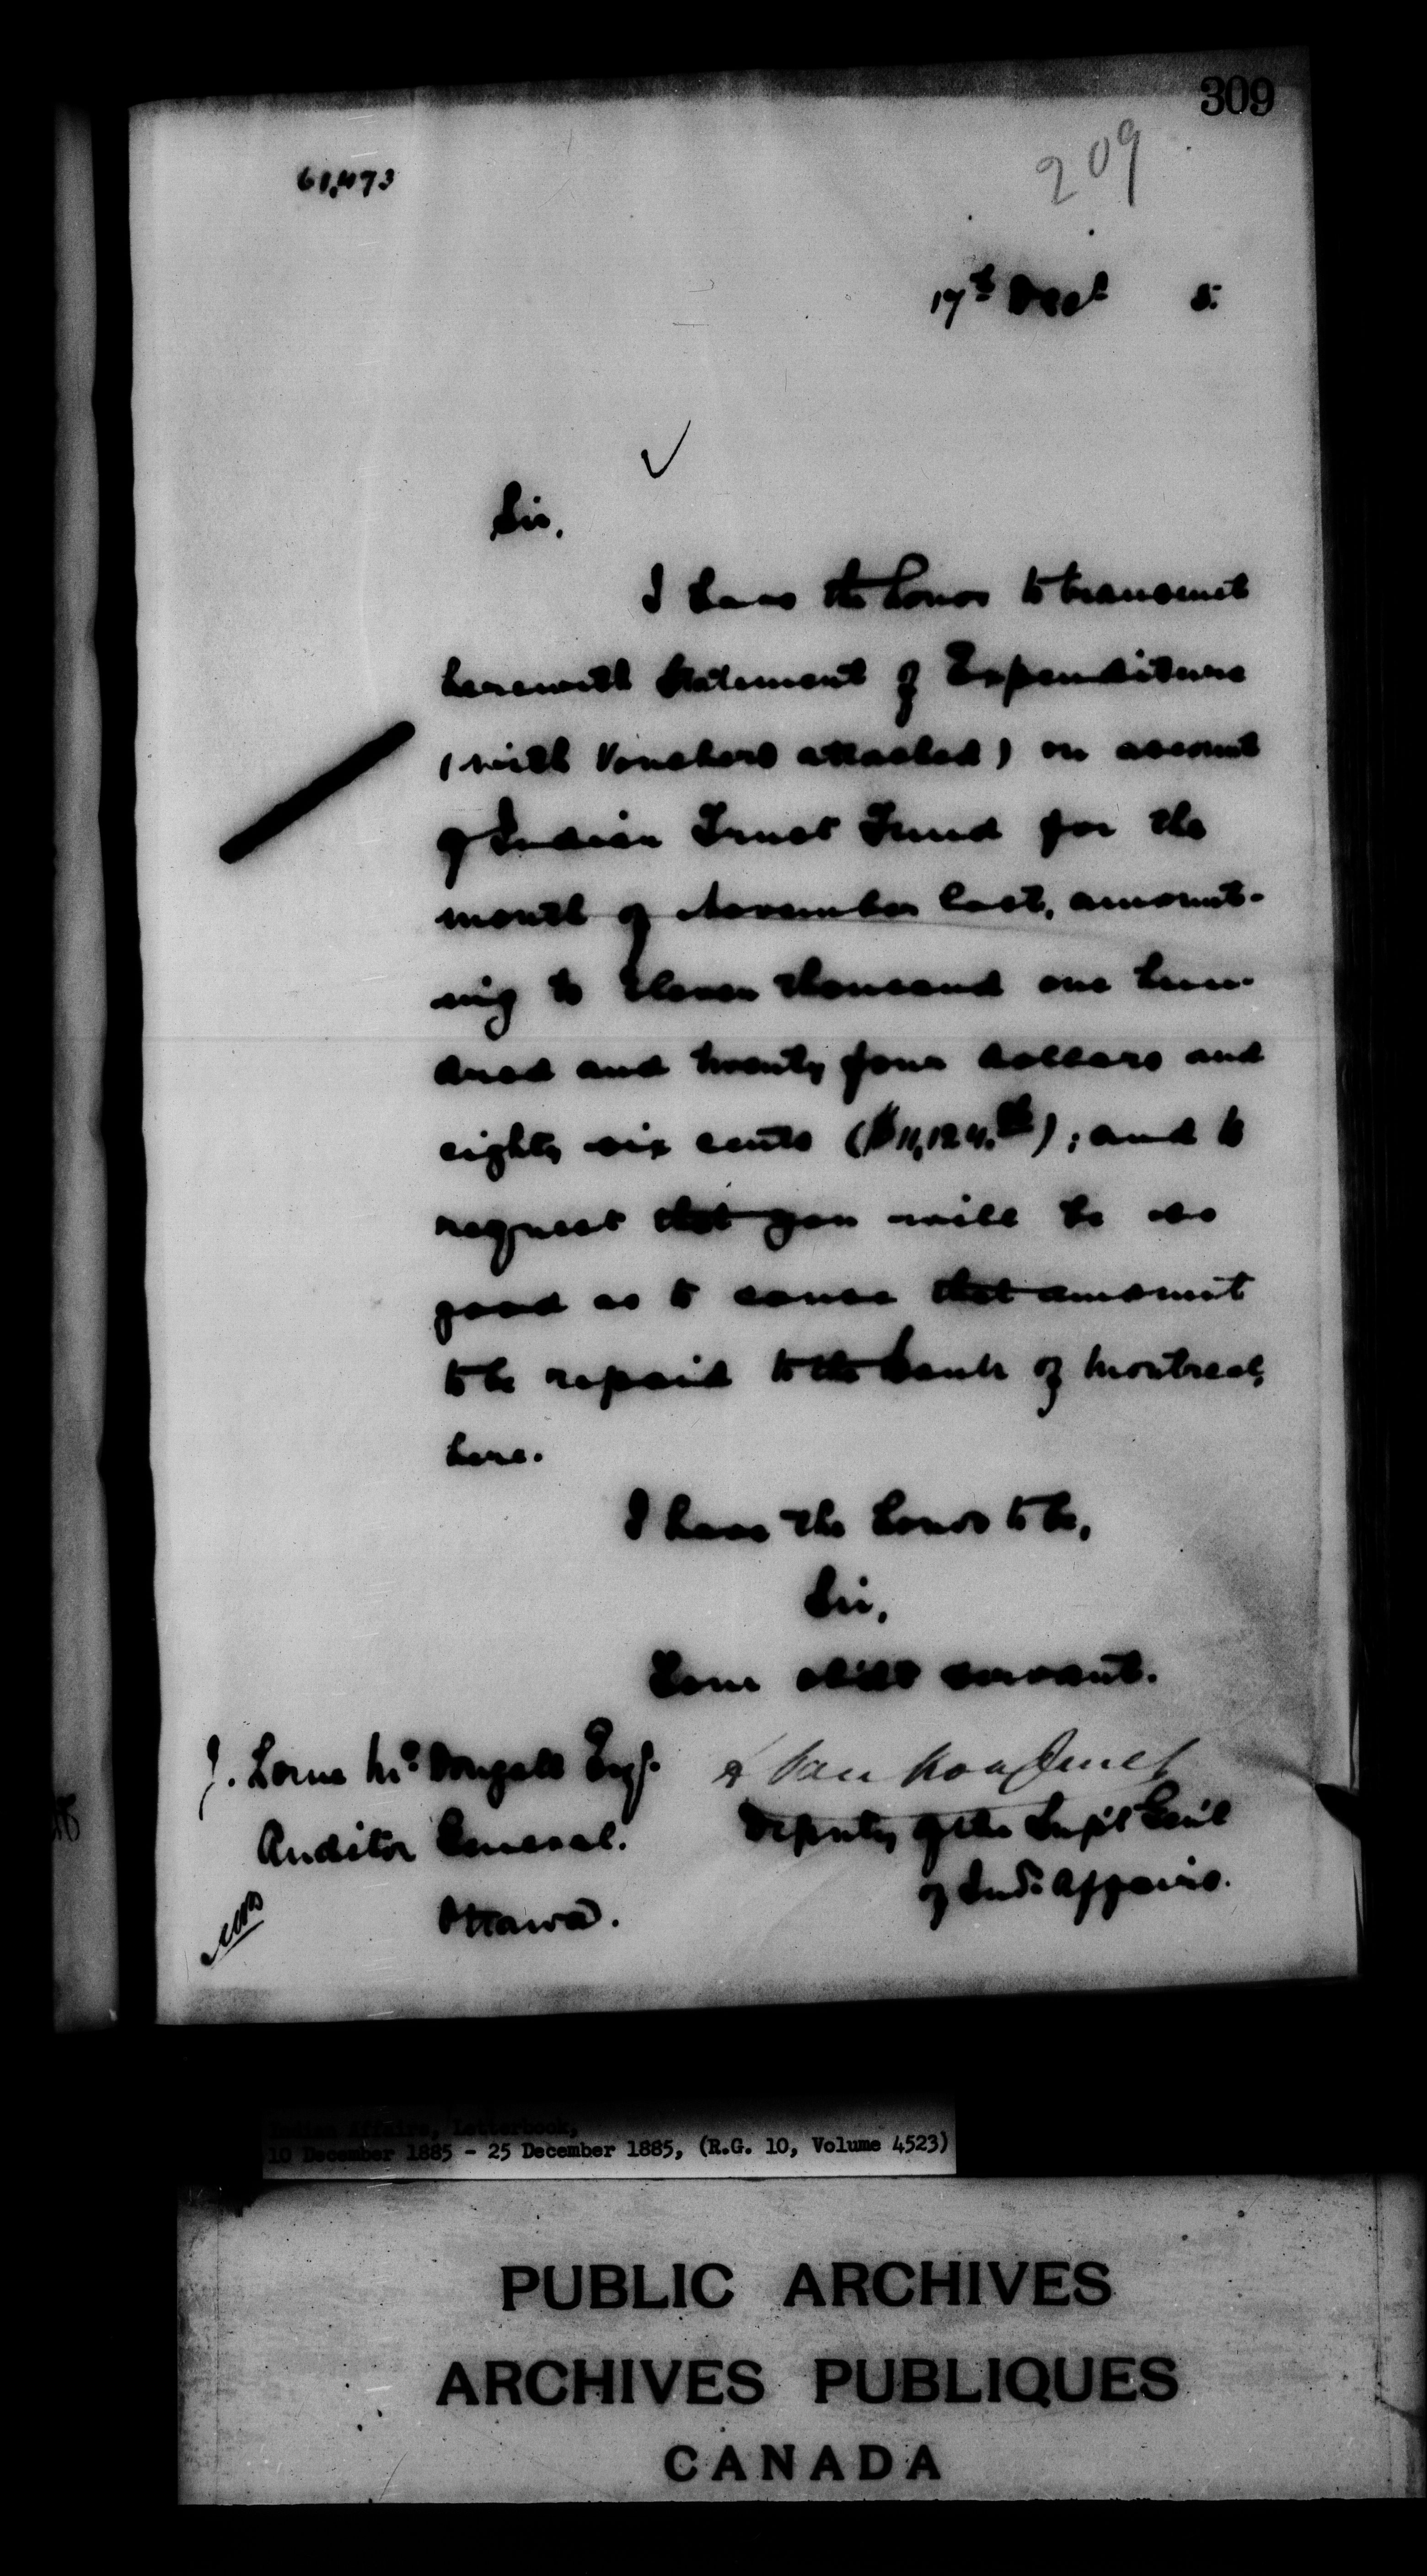 309
209
61,473
17th Decr 5.
Sir,
I have the honor to transmit
herewith Statement of Expenditure
(with Vouchers attached) on account
of Indian Trust Fund for the
month of November last, amount-
ing to Eleven thousand one hun-
dred and twenty four dollars and
eighty six cents ($11,124.86); and to
request that you will be so
good as to cause that amount
to be repaid to the Bank of Montreal,
here.
I have the honor to be,
Sir,
Your obdt servant.
L VanKoughnet
Deputy of the Supt Genl
of Ind: Affairs.
J. Lorne McDougall Esq.
Auditor General.
Ottawa.
Indian Affairs, Letterbook,
10 December 1885 - 25 December 1885, (R.G. 10, Volume 4523)
PUBLIC ARCHIVES
ARCHIVES PUBLIQUES
CANADA